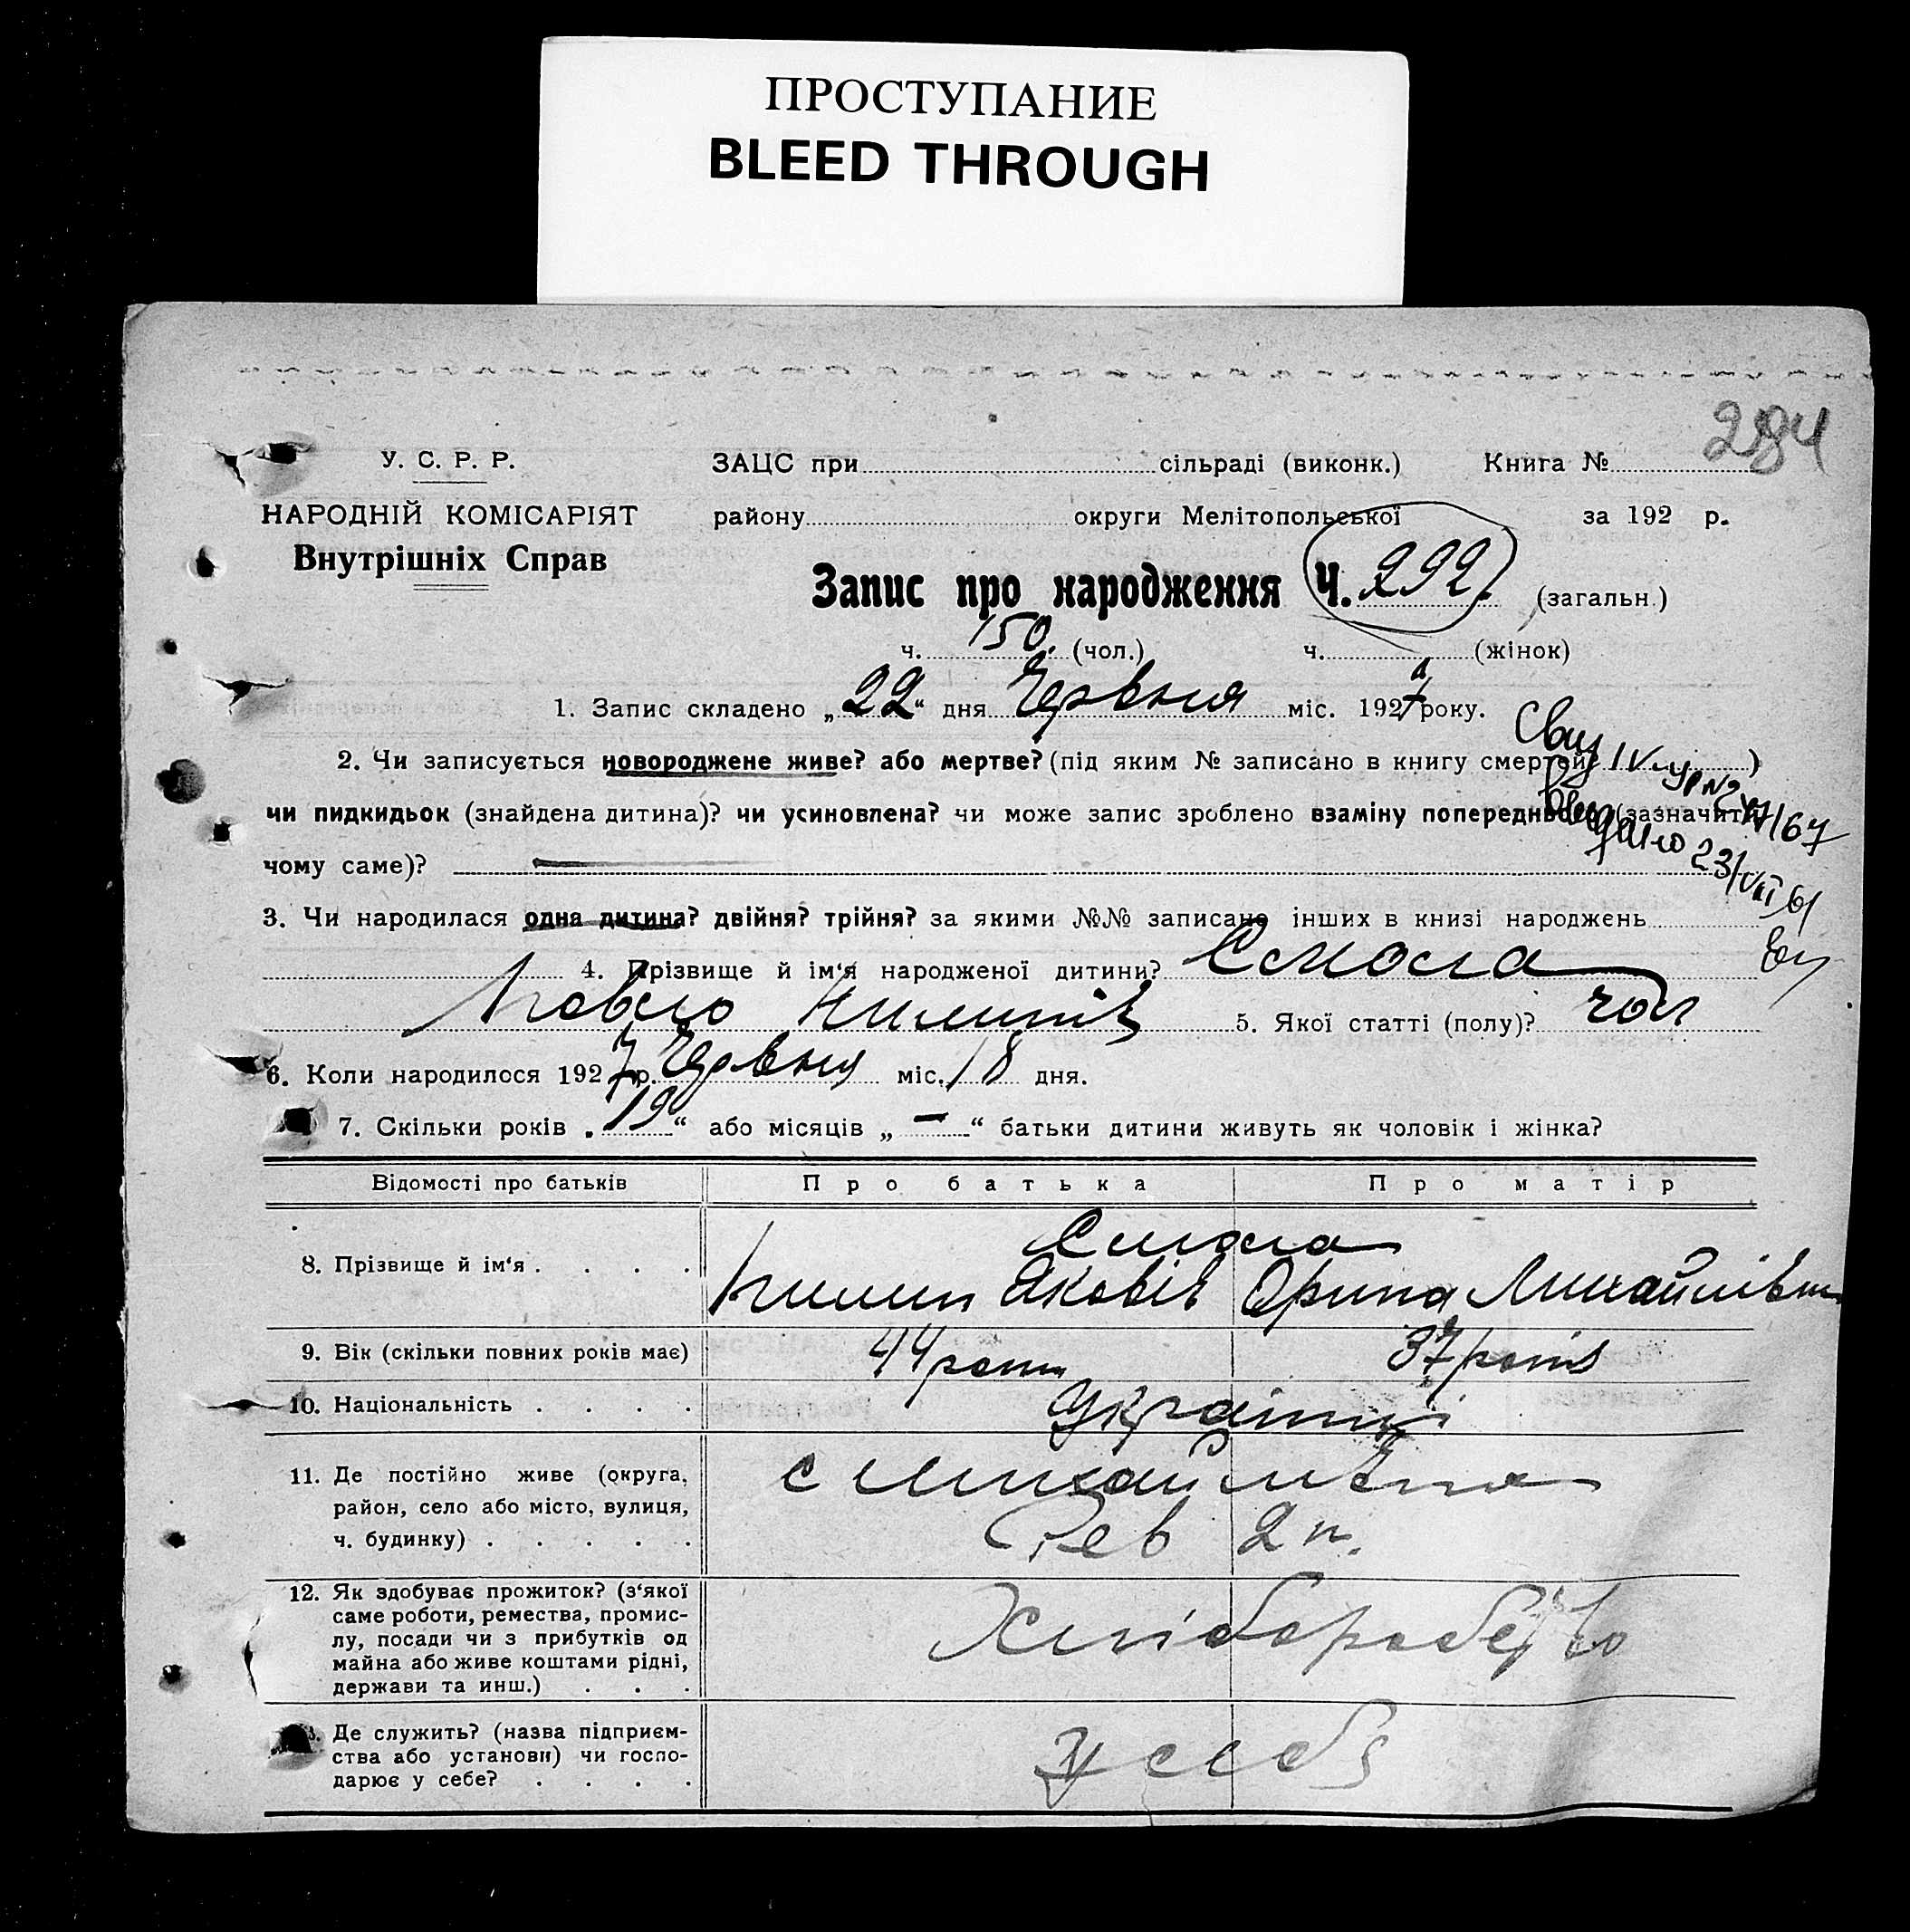 ПРОСТУПАНИЕ
BLEED THROUGH
284
У. С. Р. Р.
НАРОДНІЙ КОМІСАРІЯТ
Внутрішніх Справ
ЗАЦС при сільраді (виконк.) Книга №
району округи Мелітопольської за 192 р.
Запис про народження Ч. 292. (загальн.)
ч. 150. (чол.) ч. (жінок)
1. Запис складено „22“ дня Червня міс. 1927 року.
2. Чи записується новороджене живе? або мертве? (під яким № записано в книгу смертей )
чи пидкидьок (знайдена дитина)? чи усиновлена? чи може запис зроблено взаміну попереднього (зазначити
чому саме)?
23/VII 61
3. Чи народилася одна дитина? двійня? трійня? за якими №№ записано інших в книзі народжень
4. Прізвище й ім‘я народженої дитини? Смола
Павло Пилипів 5. Якої статті (полу)? чол
6. Коли народилося 1927 р. Червня міс. 18 дня.
7. Скільки років „19“ або місяців „—“ батьки дитини живуть як чоловік і жінка?
Відомості про батьків Про батька Про матір
8. Прізвище й ім‘я . . . . Смола
Пилип Яковів Орина Михайлівн
9. Вік (скільки повних років має) 44 роки 37 років
10. Національність . . . . Українці
11. Де постійно живе (округа,
район, село або місто, вулиця,
ч. будинку) . . . . .
с Михайлівка
Рев 2 п.
12. Як здобуває прожиток? (з‘якої
саме роботи, ремества, промис-
лу, посади чи з прибутків од
майна або живе коштами рідні,
держави та инш.) . . .
Хліборобство
Де служить? (назва підприєм-
ства або установи) чи госпо-
дарює у себе? . . . .
у себе